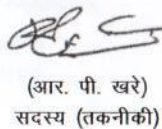 (आर. पी. खरे)
सदस्य (तकनीकी)